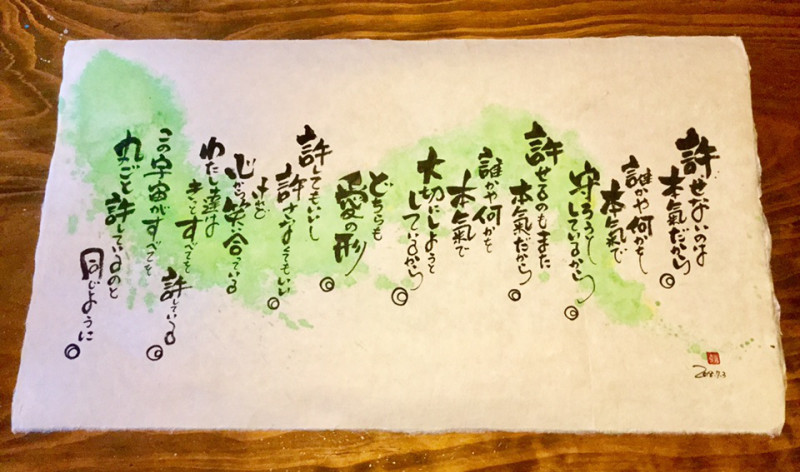 許せないのは
本氣だから◎
誰かや何かを
本氣で
守ろうとしているから◎
許せてるのもまた
本氣だから◎
誰かや何かを
本氣で
大切にしようと
しているから◎
どちらも
愛の形◎
許してもいいし
許さなくてもいい◎
心から笑い合っている
わたし達は
きっとすべてを
許している◎
この宇宙がすべてを
丸ごと許しているのと
同じように◎
2018.7.3